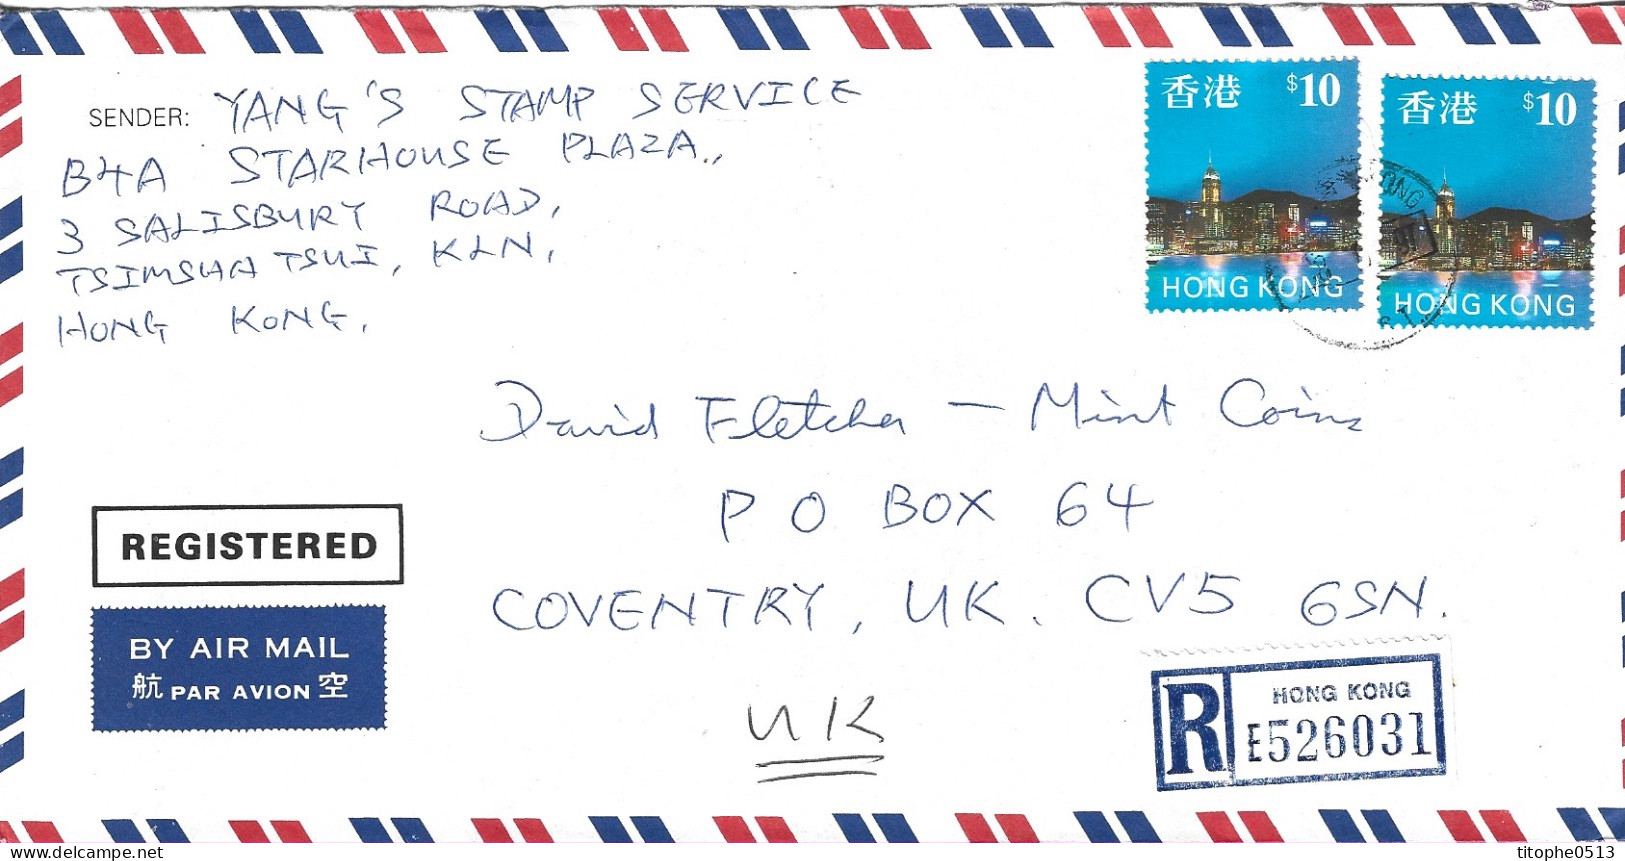 SENDER: YANG'S STAMP SERVICE
B4A STARHOUSE PLAZA.,
3 SALISBURY ROAD,
TSIMSHA TSUI, KLN,
HONG KONG,
香港 $10
HONG KONG
香港 $10
HONG KONG
David Fletcher — Mint Coins
P O BOX 64
COVENTRY, UK. CV5 6SN.
UK
REGISTERED
BY AIR MAIL
航 PAR AVION 空
R HONG KONG
E526031
titophe0513